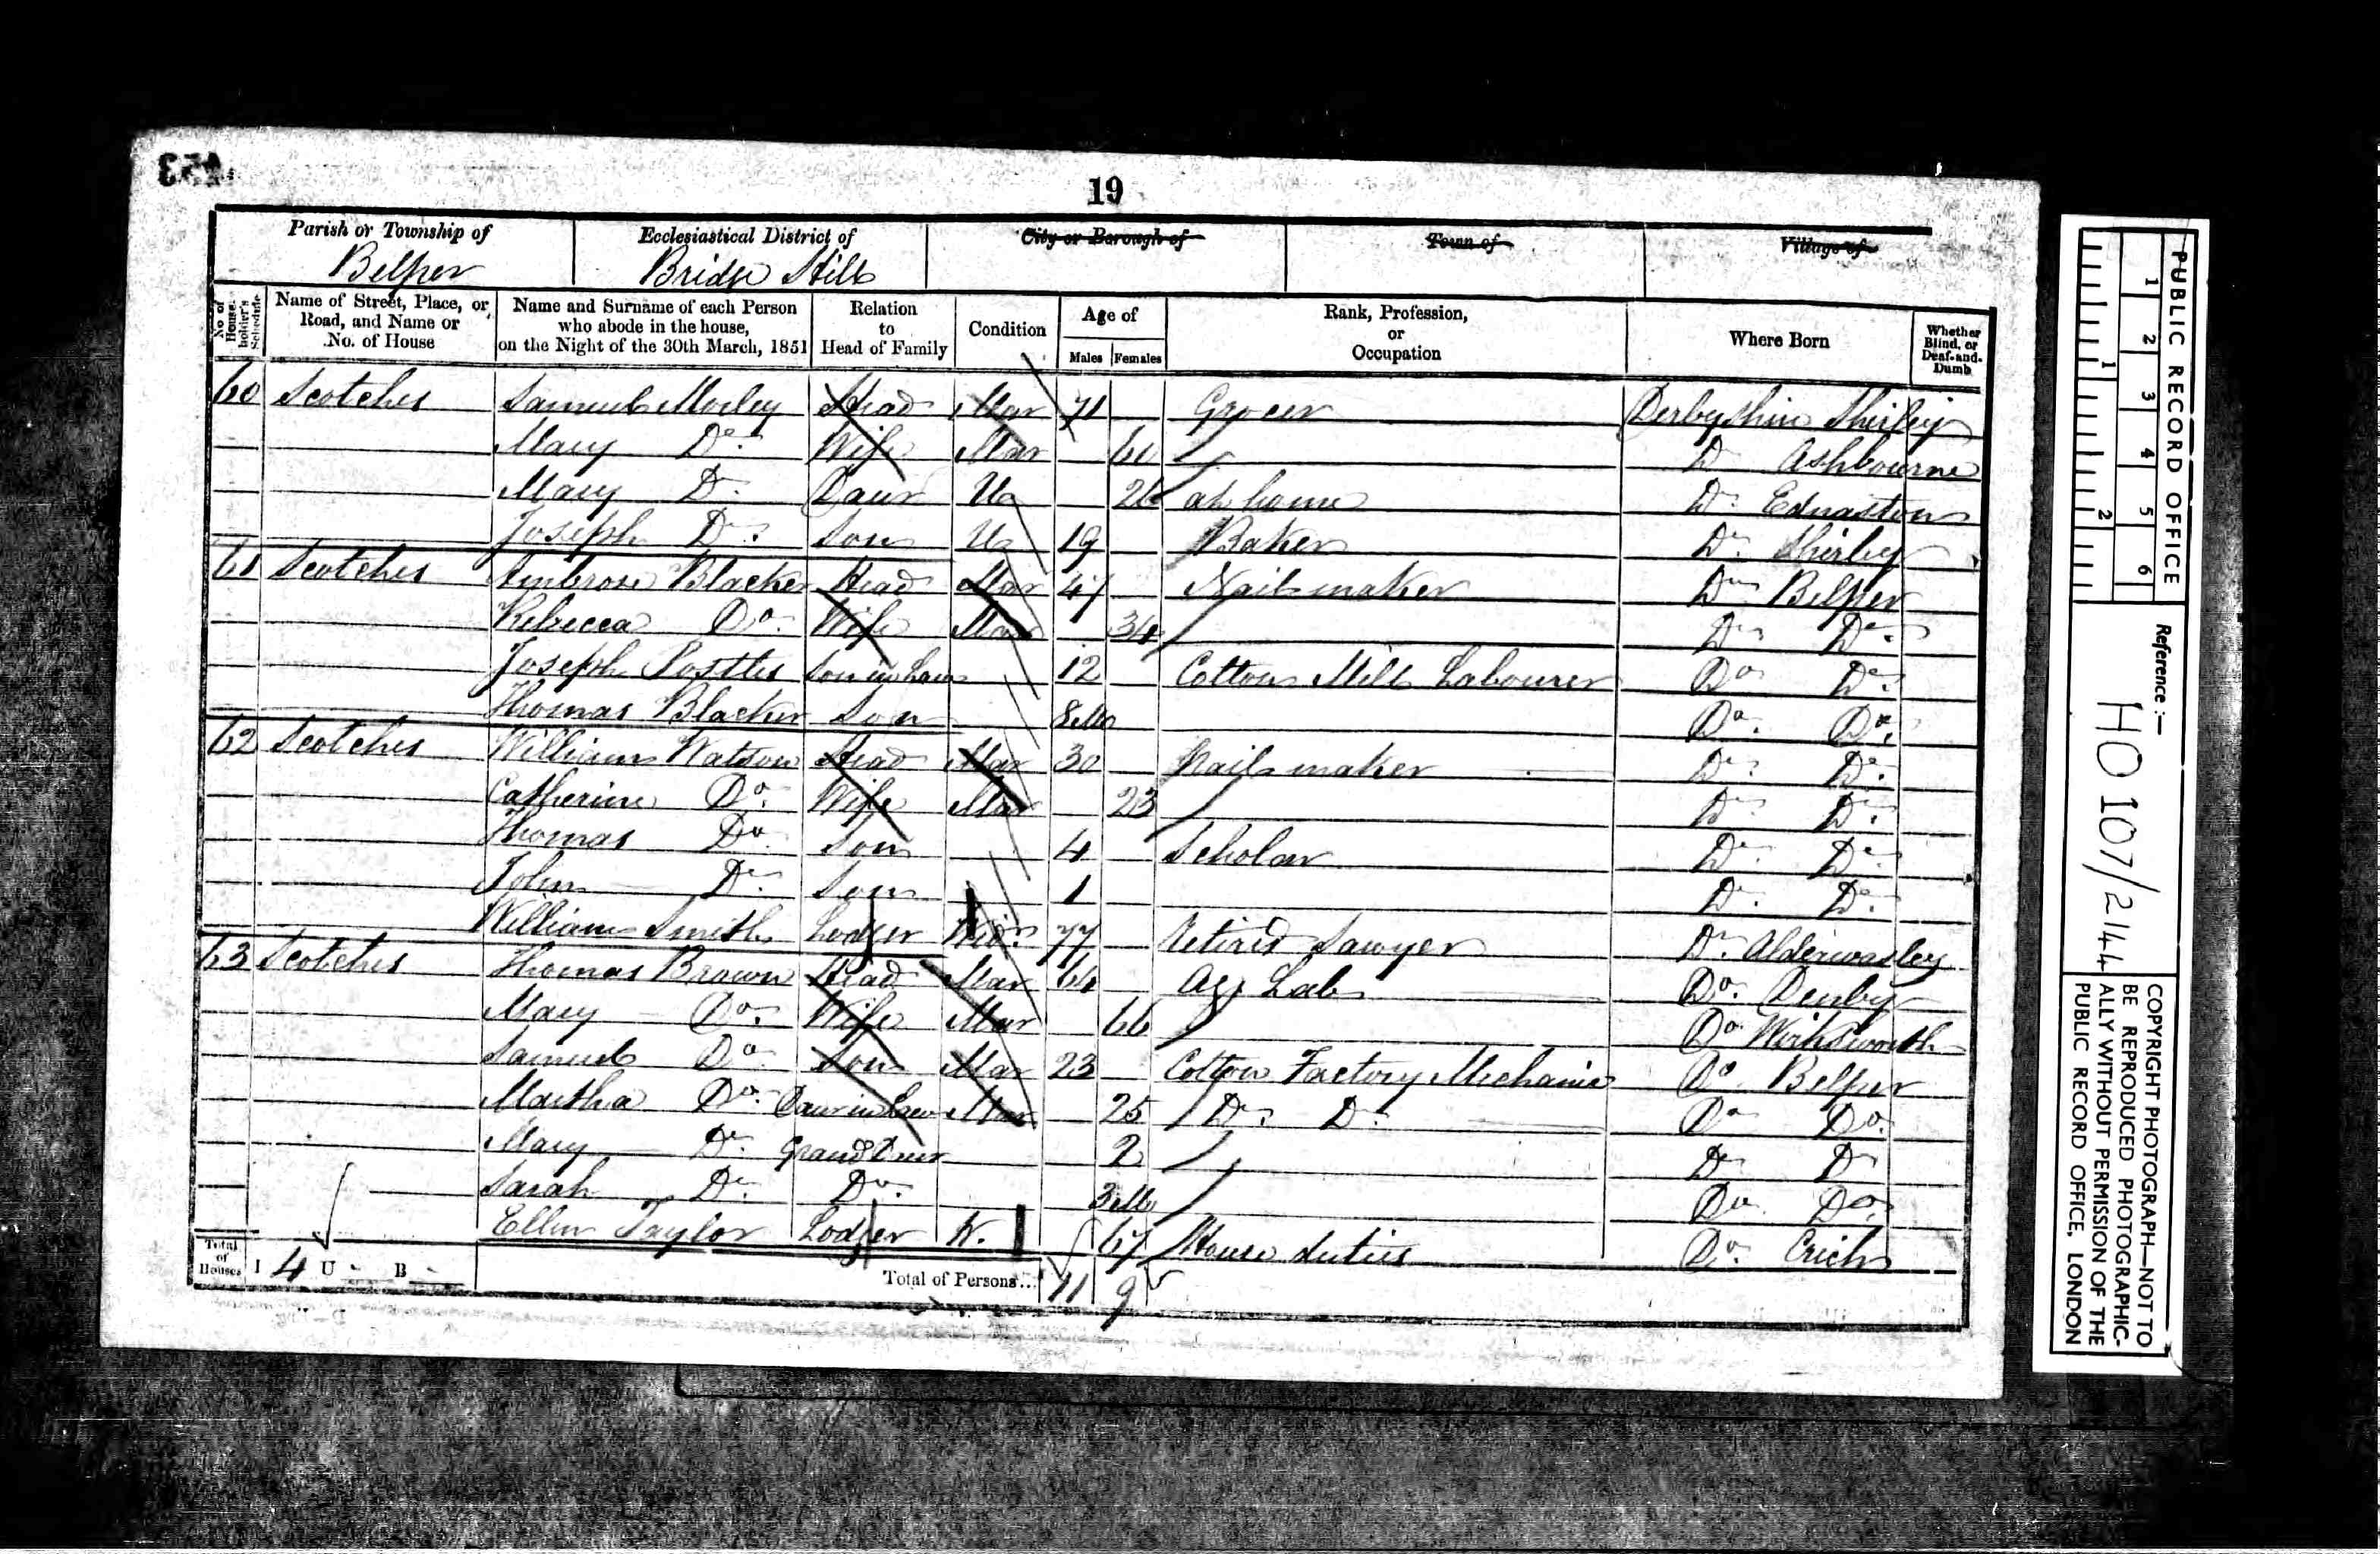 19
Parish or Township of Ecclesiastical District of City or Borough of Town of Village of
Belper Bridge Hill
No. of House-holder's Schedule Name of Street, Place, or Road, and Name or No. of House Name and Surname of each Person who abode in the house, on the Night of the 30th March, 1851 Relation to Head of Family Condition Age of Males Females Rank, Profession, or Occupation Where Born Whether Blind, or Deaf-and-Dumb
60 Scotches Samuel Morley Head Mar 71 Grocer Derbyshire Shirley
Mary Do. Wife Mar 60 Do Ashbourne
Mary Do. Daur U 26 at home Do. Ednaston
Joseph Do. Son U 19 Baker Do. Shirley
61 Scotches Ambrose Blacker Head Mar 47 Nail maker Do Belper
Rebecca Do. Wife Mar 34 Do Do.
Joseph Postles Son in Law 12 Cotton Mill Labourer Do Do.
Thomas Blacker Son 8 Mo Do. Do.
62 Scotches William Watson Head Mar 30 Nail maker Do. Do.
Catherine Do. Wife Mar 23 Do. Do.
Thomas Do Son 4 Scholar Do. Do.
John Do. Son 1 Do. Do.
William Smith Lodger Wid. 77 Retired Sawyer Do. Alderwasley
63 Scotches Thomas Brown Head Mar 64 Ag Lab Do. Denby
Mary Do. Wife Mar 66 Do. Wirksworth
Samuel Do Son Mar 23 Cotton Factory Mechanic Do Belper
Martha Do. Daur in Law Mar 25 Do. Do. Do Do.
Mary Do. Grand Daur 2 Do Do
Sarah Do. Do. 3 Mo Do. Do.
Ellen Taylor Lodger W. 67 House duties Do. Crich
Total of Houses I 4 U - B - Total of Persons... 11 9
PUBLIC RECORD OFFICE
1 2 3 4 5 6
1 2
Reference :—
HO 107/2144
COPYRIGHT PHOTOGRAPH—NOT TO
BE REPRODUCED PHOTOGRAPHIC-
ALLY WITHOUT PERMISSION OF THE
PUBLIC RECORD OFFICE, LONDON